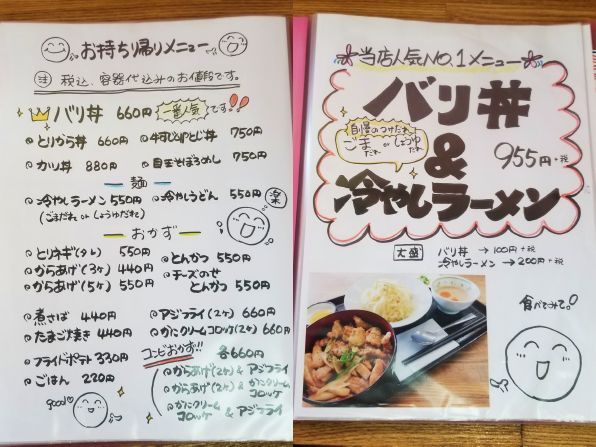 お持ち帰りメニュー
注 税込、容器代込みのお値段です。
バリ丼 660円 一番人気です!!
とりから丼 660円
カツ丼 880円
750円
目玉そぼろめし 750円
麺
冷やしラーメン 550円
(ごまだれ or しょうゆだれ)
冷やしうどん 550円
楽
おかず
とりネギ(タレ) 550円
からあげ(3ヶ) 440円
からあげ(5ヶ) 550円
とんかつ 550円
チーズのせ
とんかつ 550円
煮さば 440円
たまご焼き 440円
フライドポテト 330円
ごはん 220円
good
アジフライ(2ヶ) 660円
かにクリームコロッケ(2ヶ) 660円
コンビおかず!! 各660円
からあげ(2ヶ) & アジフライ
からあげ(2ヶ) & かにクリームコロッケ
かにクリームコロッケ & アジフライ
当店人気NO.1メニュー
バリ丼
自慢のつけだれ
ごまだれ or しょうゆだれ
&
955円+税
冷やしラーメン
大盛
バリ丼 → 100円+税
冷やしラーメン → 200円+税
食べてみて。